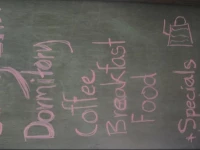 Dormitory
Coffee
Breakfast
Food
+ Specials